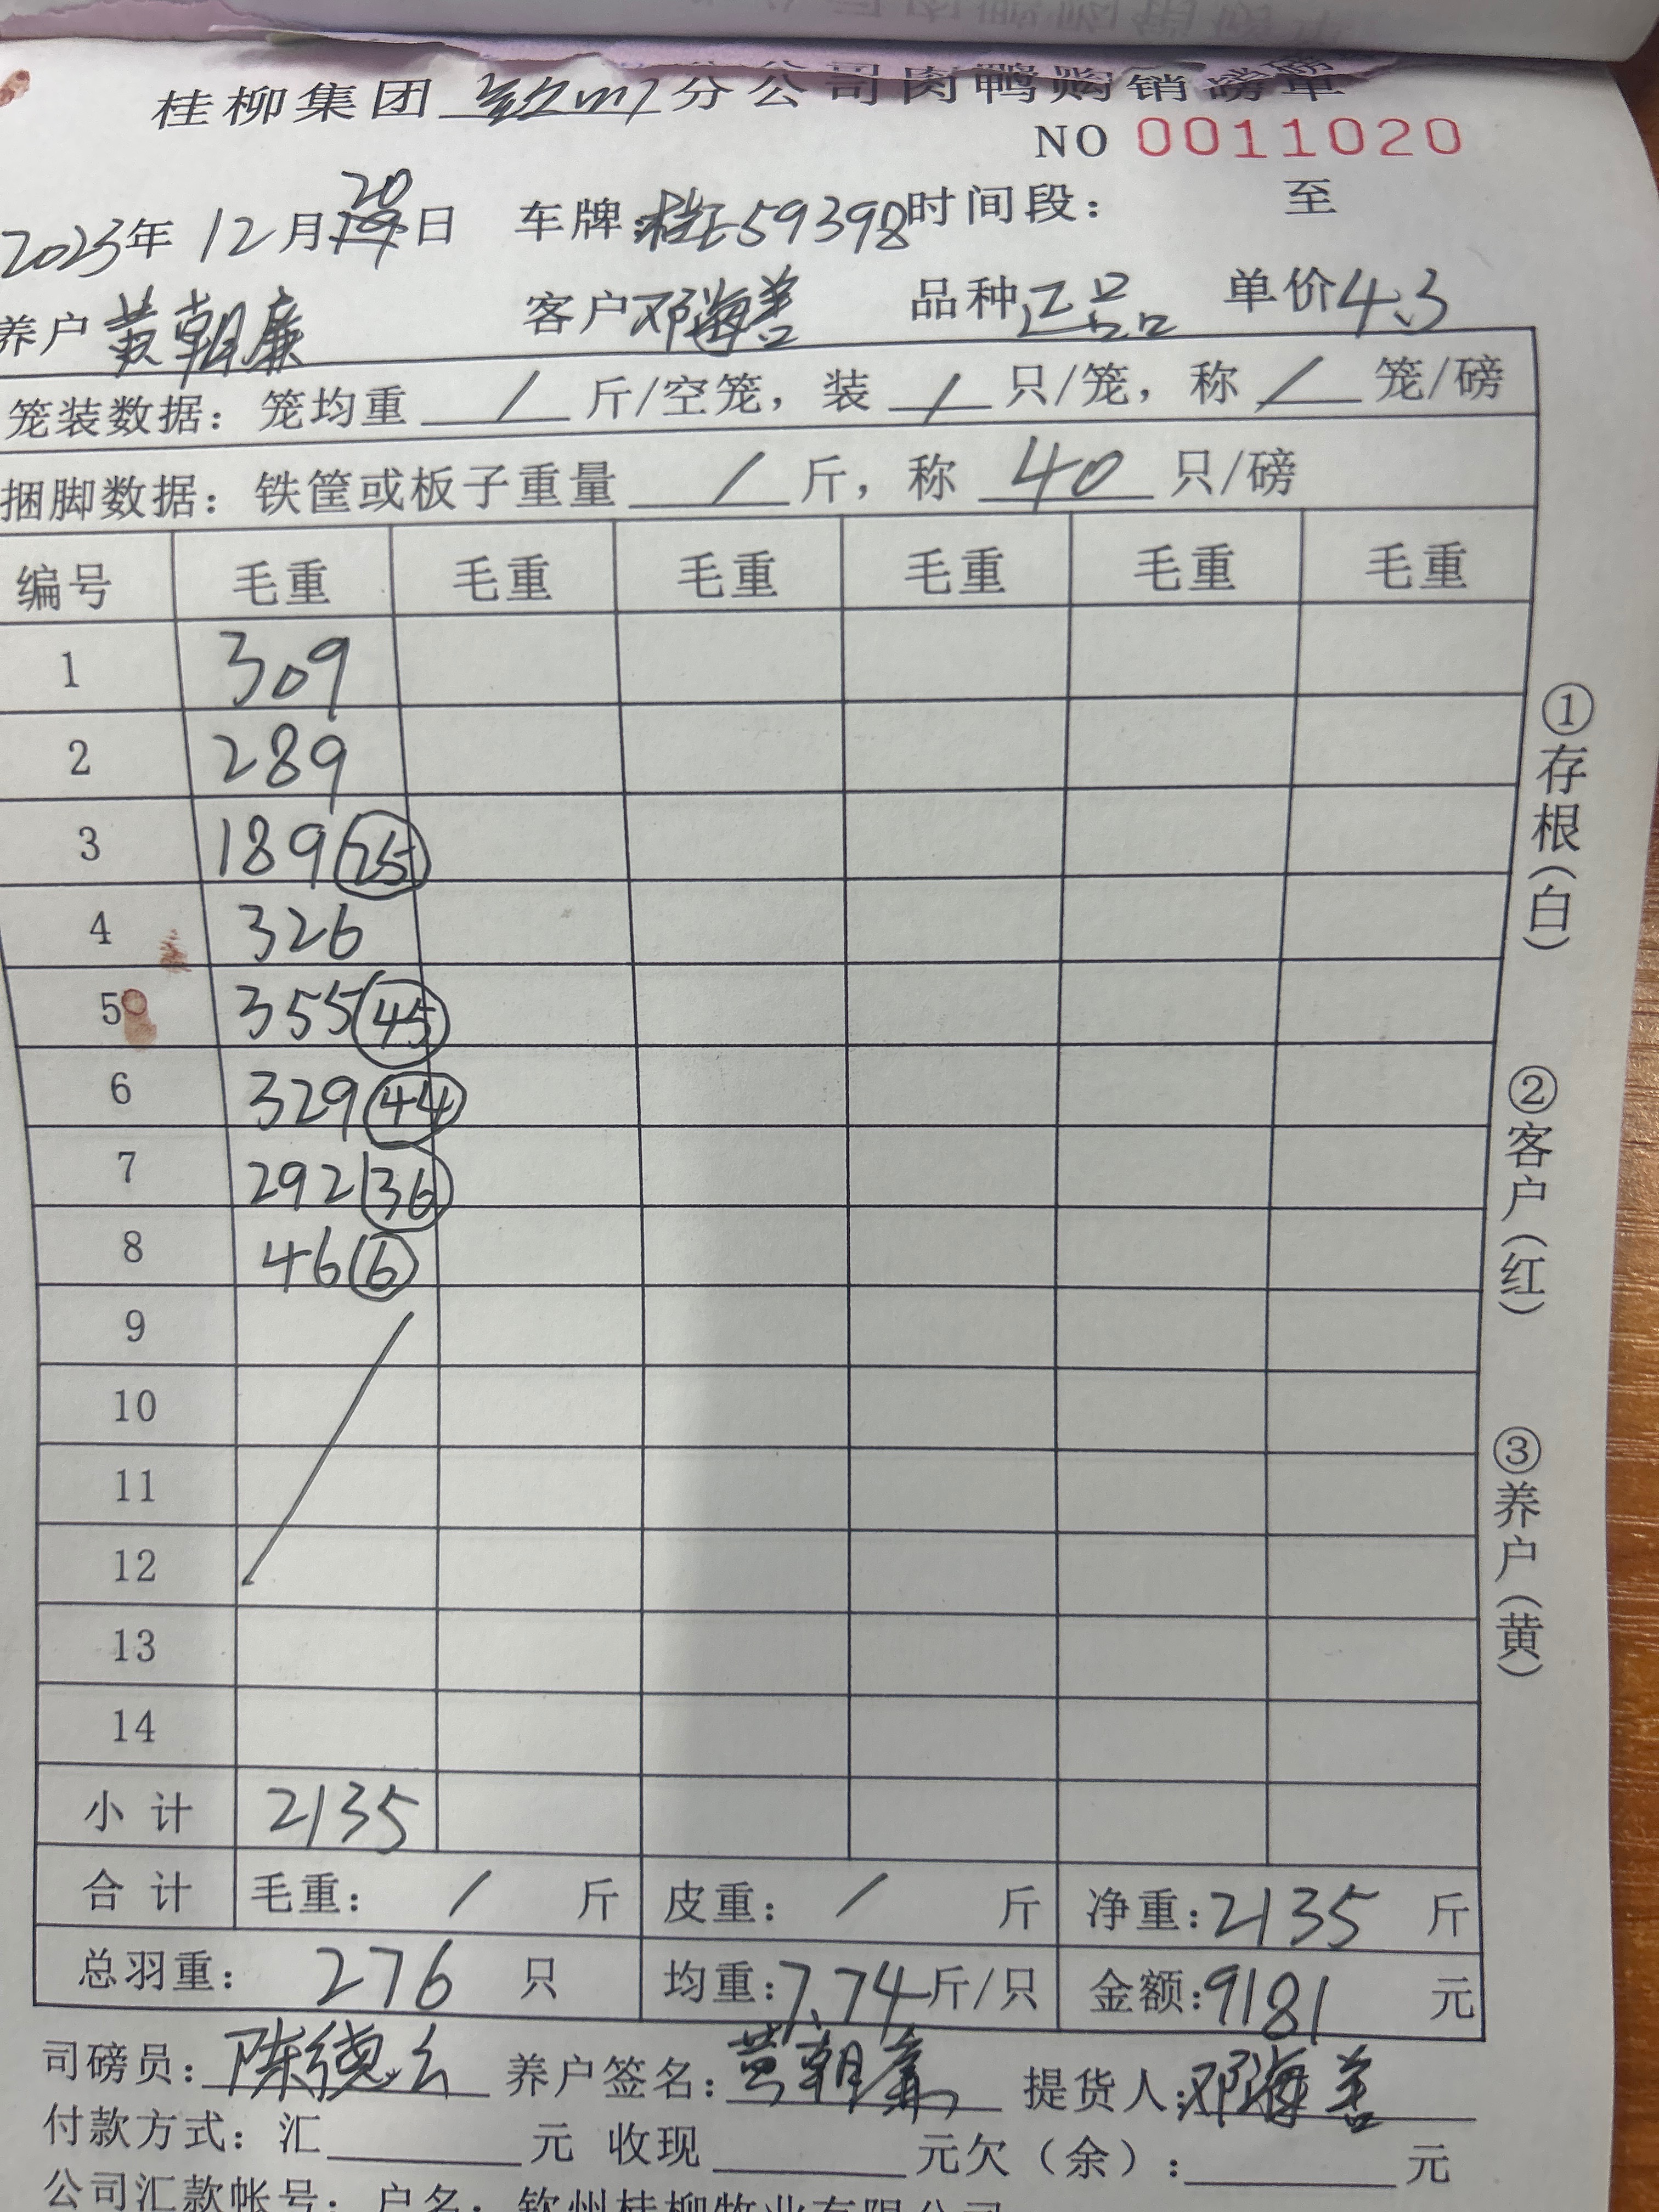 桂柳集团 钦州 分公司肉鸭购销磅单
NO 0011020
2023年 12月 20日 车牌:桂E59398 时间段: 至
养户 黄朝廉 客户 邓海善 品种 正品 单价 4.3
笼装数据: 笼均重 / 斤/空笼, 装 / 只/笼, 称 / 笼/磅
捆脚数据: 铁筐或板子重量 / 斤, 称 40 只/磅
编号 毛重 毛重 毛重 毛重 毛重 毛重
1 309
2 289
3 189 (25)
4 326
5 355 (45)
6 329 (44)
7 292 (36)
8 46 (6)
9
10
11
12
13
14
小计 2135
合计 毛重: / 斤 皮重: / 斤 净重: 2135 斤
总羽重: 276 只 均重: 7.74 斤/只 金额: 9181 元
司磅员: 陈德云 养户签名: 黄朝廉 提货人: 邓海善
付款方式: 汇 元 收现 元 欠(余): 元
公司汇款帐号: 户名: 钦州桂柳牧业有限公司
①存根(白)
②客户(红)
③养户(黄)